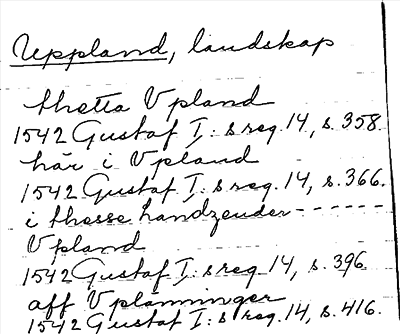 Uppland, landskap
thetta Vpland
1542 Gustaf I: s reg. 14, s. 358.
här i Vpland
1542 Gustaf I: s reg. 14, s. 366.
i thesse landzender - - - - - -
Vpland
1542 Gustaf I: s reg. 14, s. 396
aff Vplänninger
1542 Gustaf I: s reg. 14, s. 416.